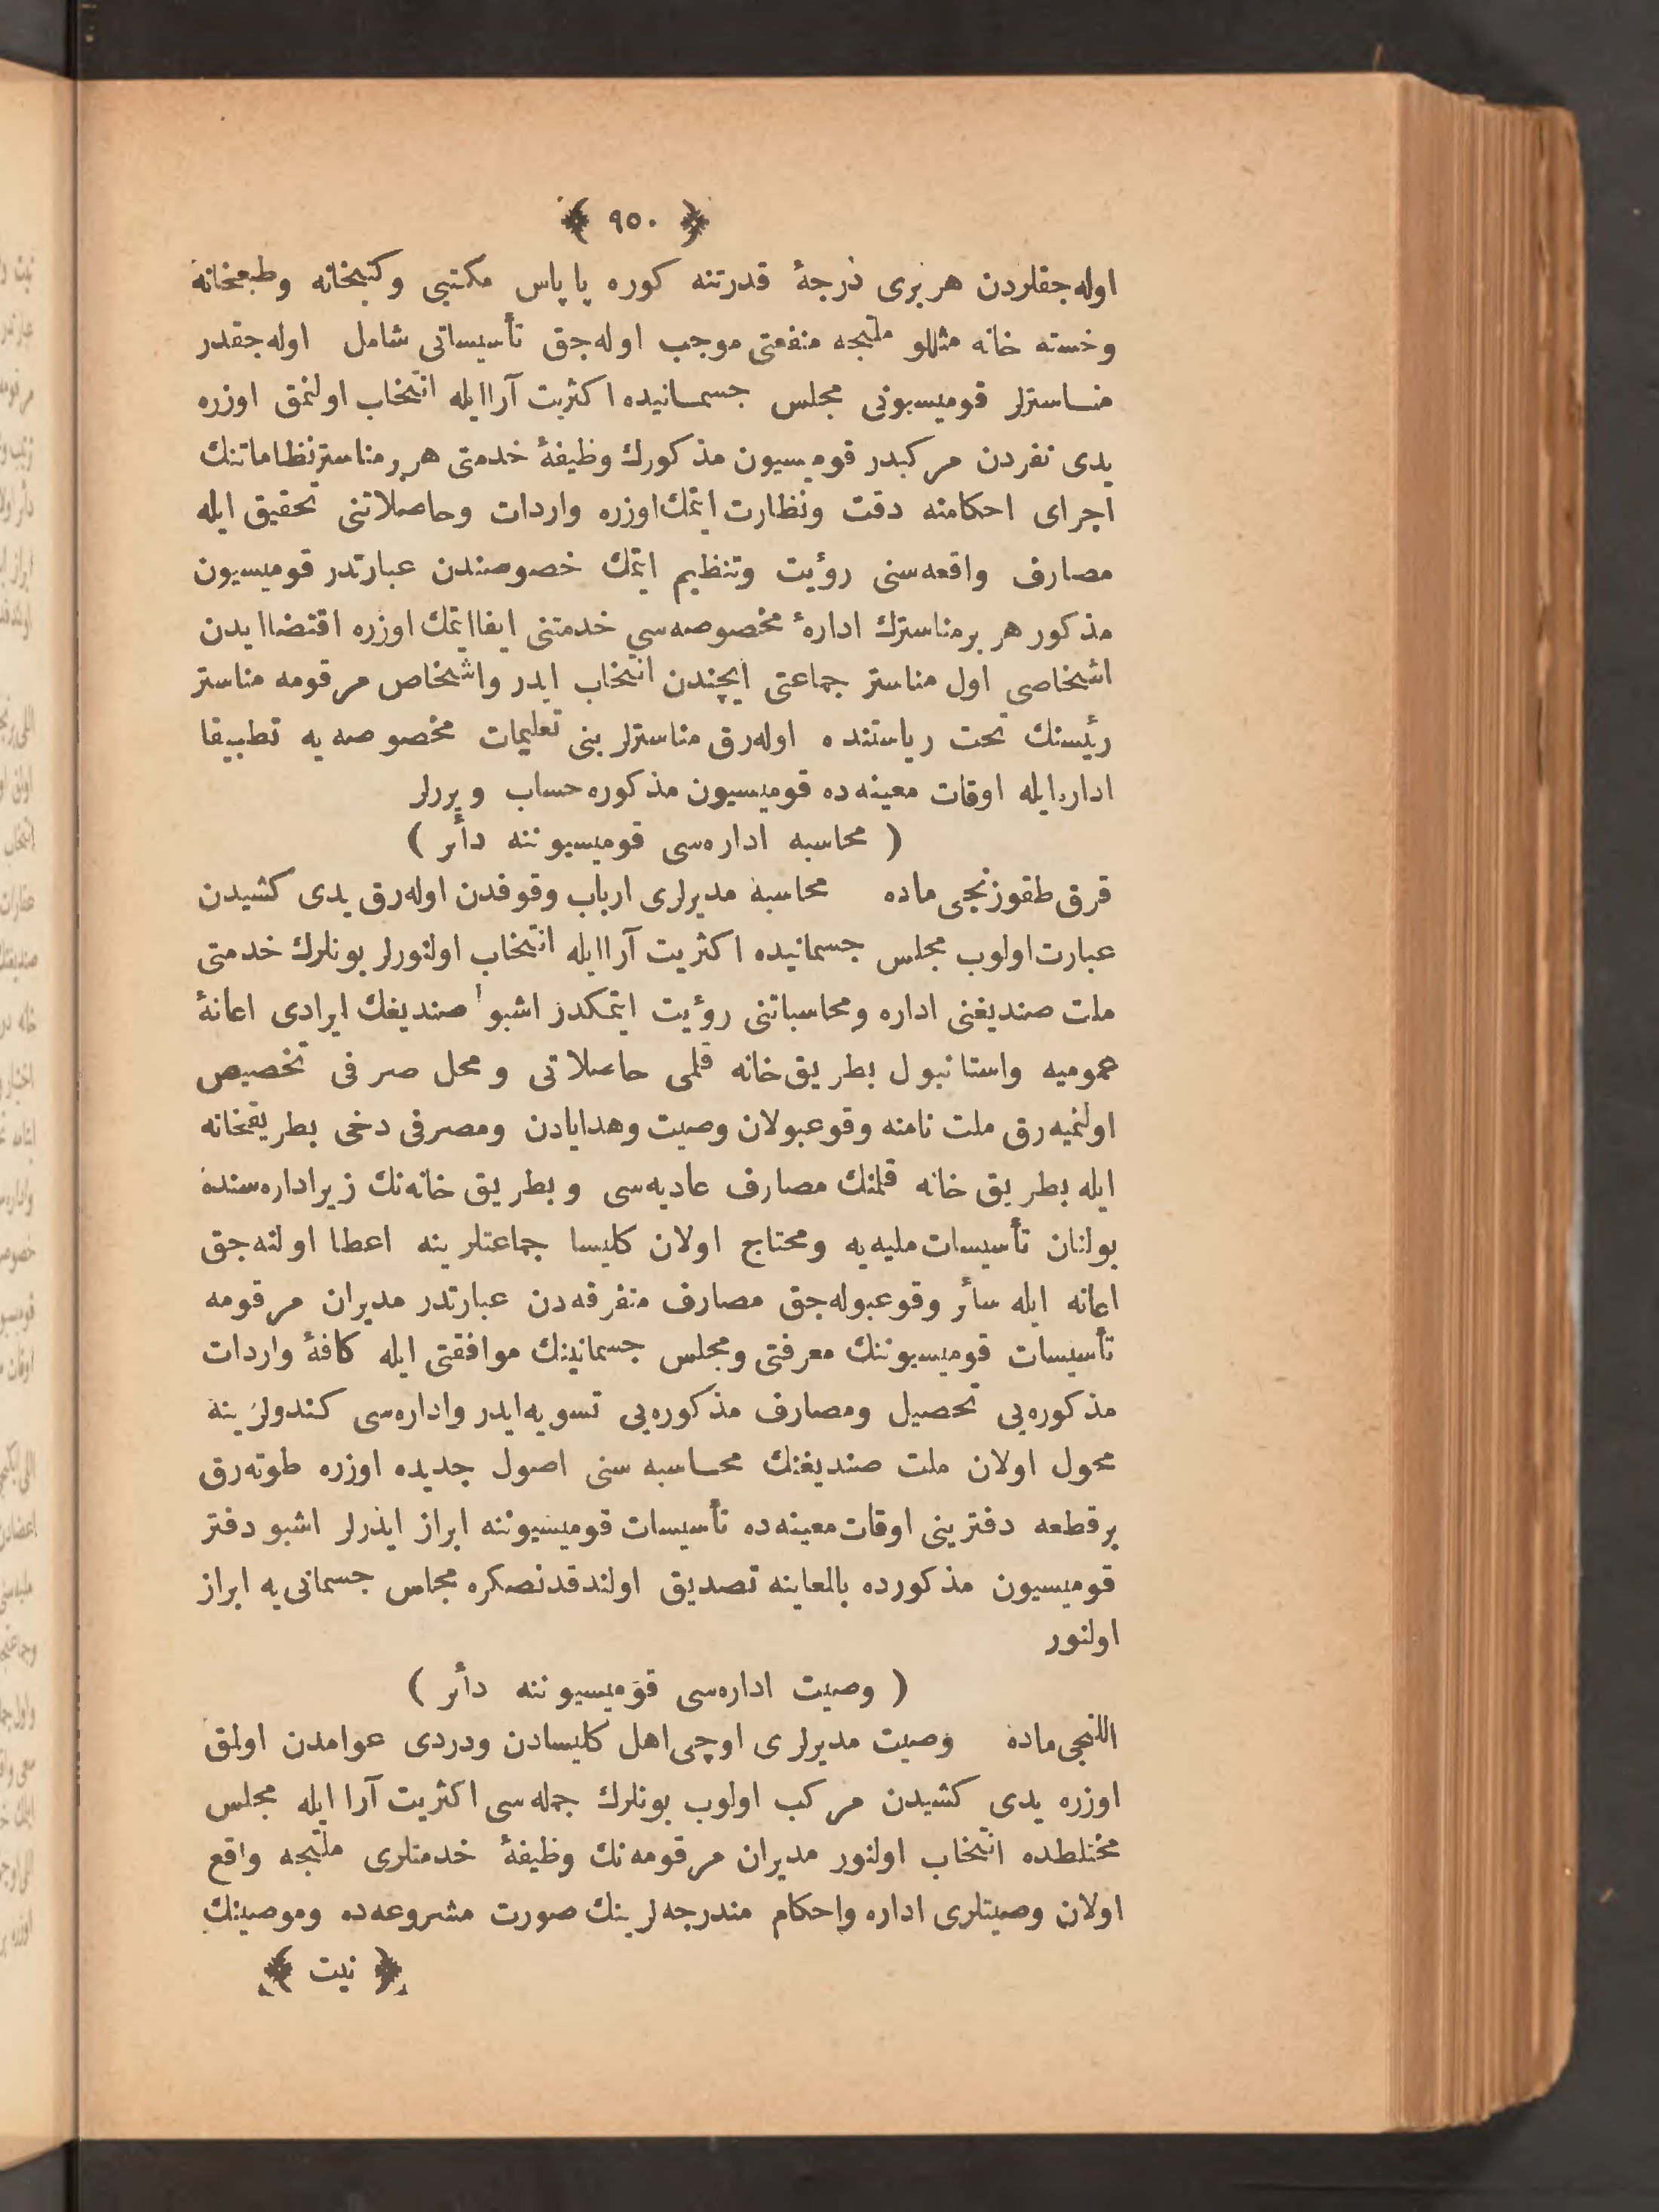 ﴿ ٩٥٠ ﴾
اوله‌جقلردن هر بری درجهٔ قدرتنه كوره پاپاس مكتبی وكتبخانه وطبعخانه
وخسته خانه مثللو ملتجه منفعتی موجب اوله‌جق تأسیساتی شامل اوله‌جقدر
مناسترلر قومیسیونی مجلس جسمانیده اكثریت آرا ایله انتخاب اولنمق اوزره
یدی نفردن مركبدر قومیسیون مذكورك وظیفهٔ خدمتی هر بر مناستر نظاماتنك
اجرای احكامنه دقت ونظارت ایتمك اوزره واردات وحاصلاتنی تحقیق ایله
مصارف واقعه‌سنی رؤیت وتنظیم ایتمك خصوصندن عبارتدر قومیسیون
مذكور هر بر مناسترك ادارهٔ مخصوصه‌سی خدمتنی ایفا ایتمك اوزره اقتضا ایدن
اشخاصی اول مناستر جماعتی ایچندن انتخاب ایدر واشخاص مرقومه مناستر
رئیسنك تحت ریاستنده اوله‌رق مناسترلرینی تعلیمات مخصوصه‌یه تطبیقا
اداره ایله اوقات معینه‌ده قومیسیون مذكوره حساب ویررلر
( محاسبه اداره‌سی قومیسیوننه دأئر )
قرق طقوزنجی ماده محاسبه مدیرلری ارباب وقوفدن اوله‌رق یدی كشیدن
عبارت اولوب مجلس جسمانیده اكثریت آرا ایله انتخاب اولنورلر بونلرك خدمتی
ملت صندیغنی اداره ومحاسباتنی رؤیت ایتمكدر اشبو صندیغك ایرادی اعانهٔ
عمومیه واستانبول بطریق‌خانه قلمی حاصلاتی ومحل صرفی تخصیص
اولنمیه‌رق ملت نامنه وقوعبولان وصیت وهدایادن ومصرفی دخی بطریقخانه
ایله بطریق خانه قلمنك مصارف عادیه‌سی وبطریق خانه‌نك زیر اداره‌سنده
بولنان تأسیسات ملیه‌یه ومحتاج اولان كلیسا جماعتلرینه اعطا اولنه‌جق
اعانه ایله سأئر وقوعبوله‌جق مصارف متفرقه‌دن عبارتدر مدیران مرقومه
تأسیسات قومیسیوننك معرفتی ومجلس جسمانینك موافقتی ایله كافهٔ واردات
مذكوره‌یی تحصیل ومصارف مذكوره‌یی تسویه ایدر واداره‌سی كندولرینه
محول اولان ملت صندیغنك محاسبه سنی اصول جدیده اوزره طوته‌رق
بر قطعه دفترینی اوقات معینه‌ده تأسیسات قومیسیوننه ابراز ایدرلر اشبو دفتر
قومیسیون مذكورده بالمعاینه تصدیق اولندقدنصكره مجلس جسمانی‌یه ابراز
اولنور
( وصیت اداره‌سی قومیسیوننه دأئر )
اللنجی ماده وصیت مدیرلری اوچی اهل كلیسادن ودردی عوامدن اولمق
اوزره یدی كشیدن مركب اولوب بونلرك جمله‌سی اكثریت آرا ایله مجلس
مختلطده انتخاب اولنور مدیران مرقومه‌نك وظیفهٔ خدمتلری ملتجه واقع
اولان وصیتلری اداره واحكام مندرجه‌لرینك صورت مشروعه‌ده وموصینك
﴿ نیت ﴾